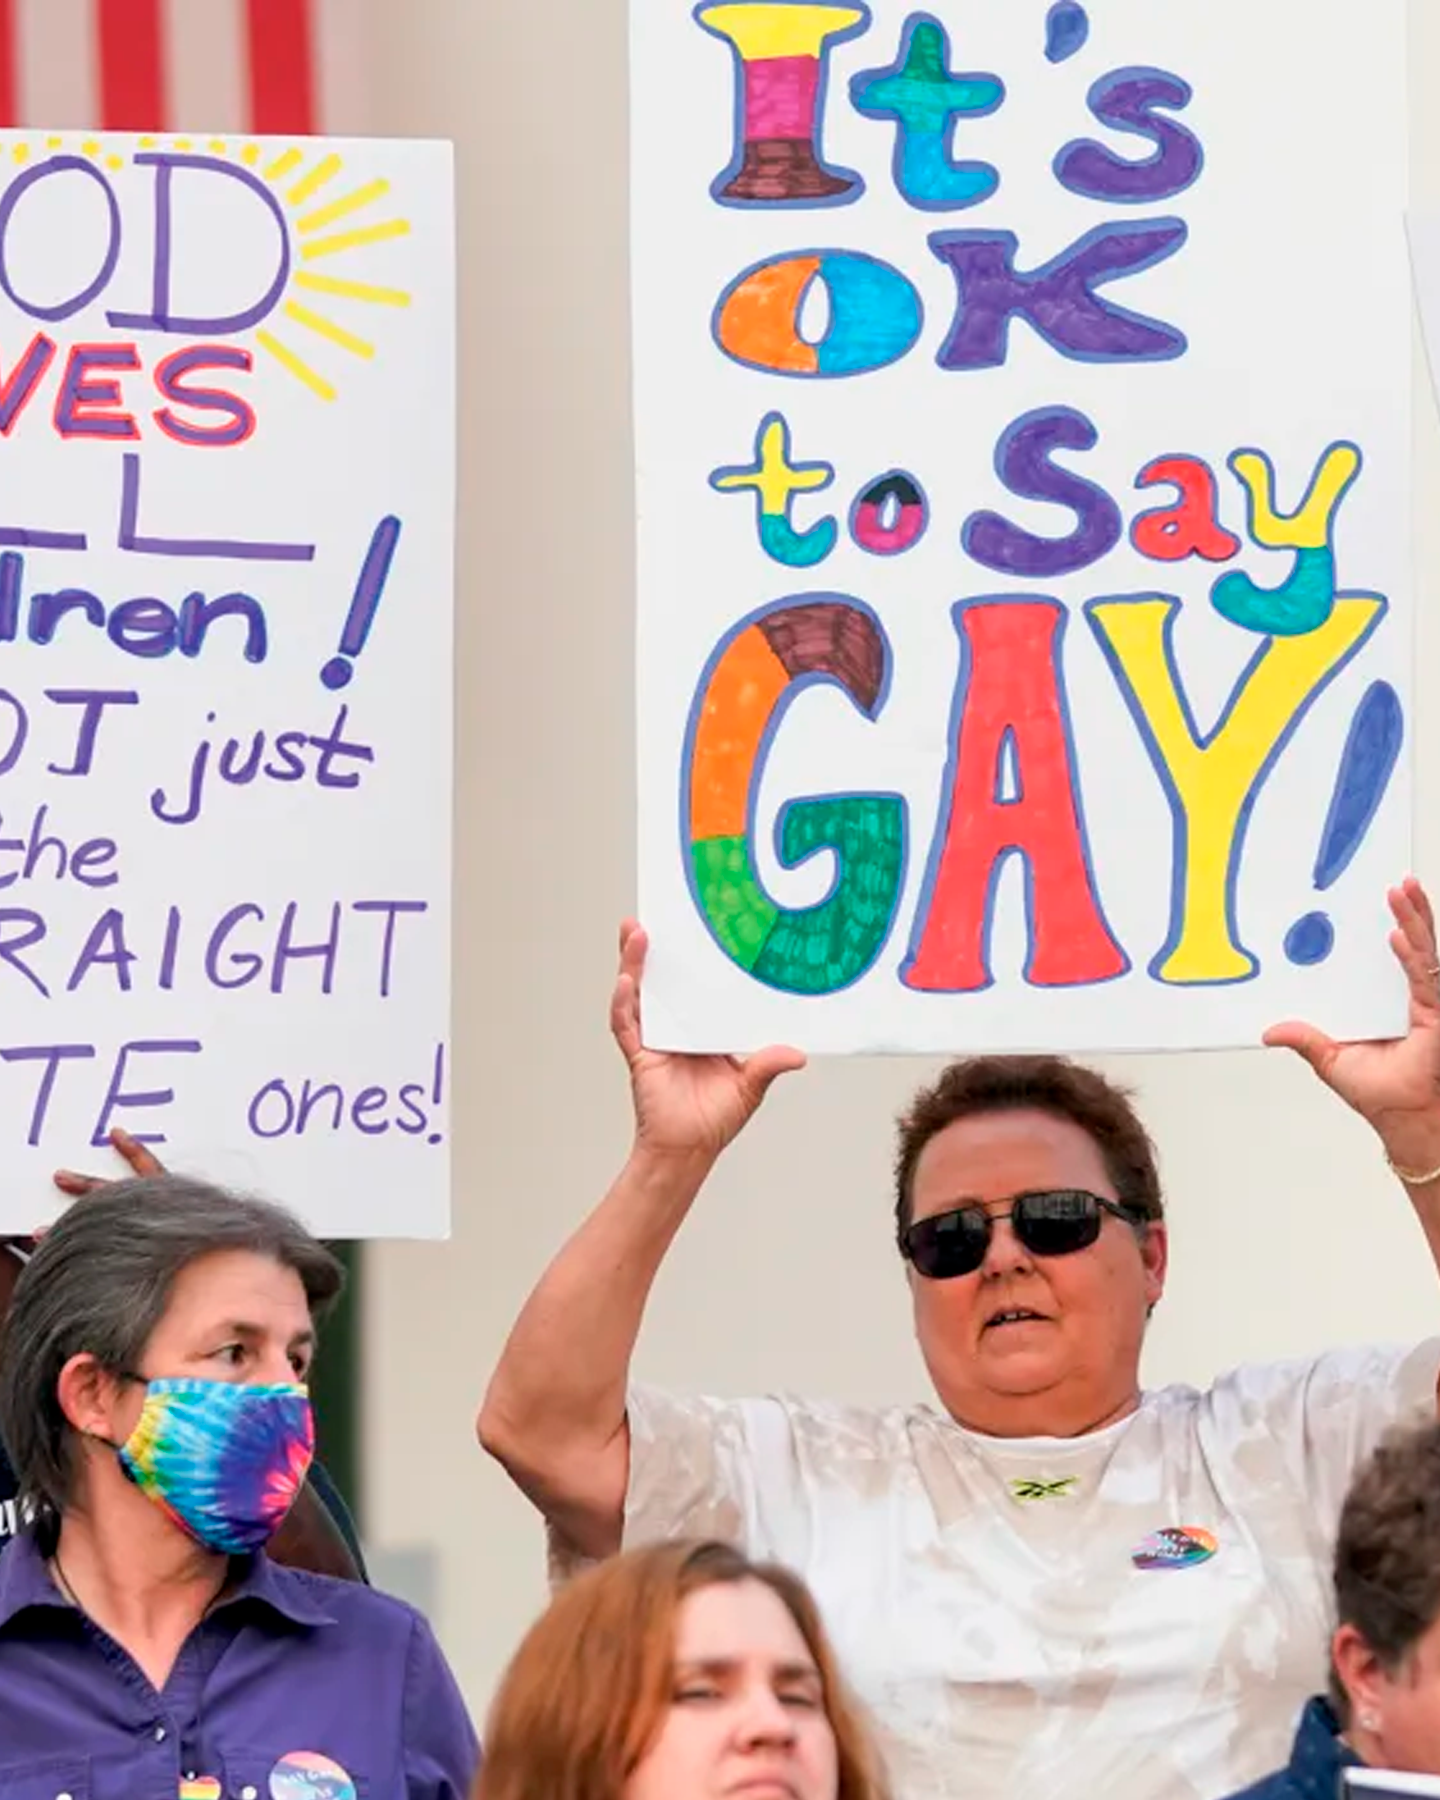 OD
VES
L
dren!
OT just
the
RAIGHT
TE ones!
It's
OK
to Say
GAY!